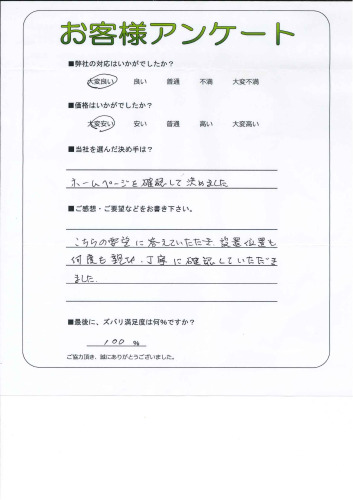 お客様アンケート
■弊社の対応はいかがでしたか？
大変良い 良い 普通 不満 大変不満
■価格はいかがでしたか？
大変安い 安い 普通 高い 大変高い
■当社を選んだ決め手は？
ホームページを確認して決めました
■ご感想・ご要望などをお書き下さい。
こちらの要望に答えていただき、設置位置も
何度も親切、丁寧に確認していただき
ました。
■最後に、ズバリ満足度は何％ですか？
100 %
ご協力頂き、誠にありがとうございました。